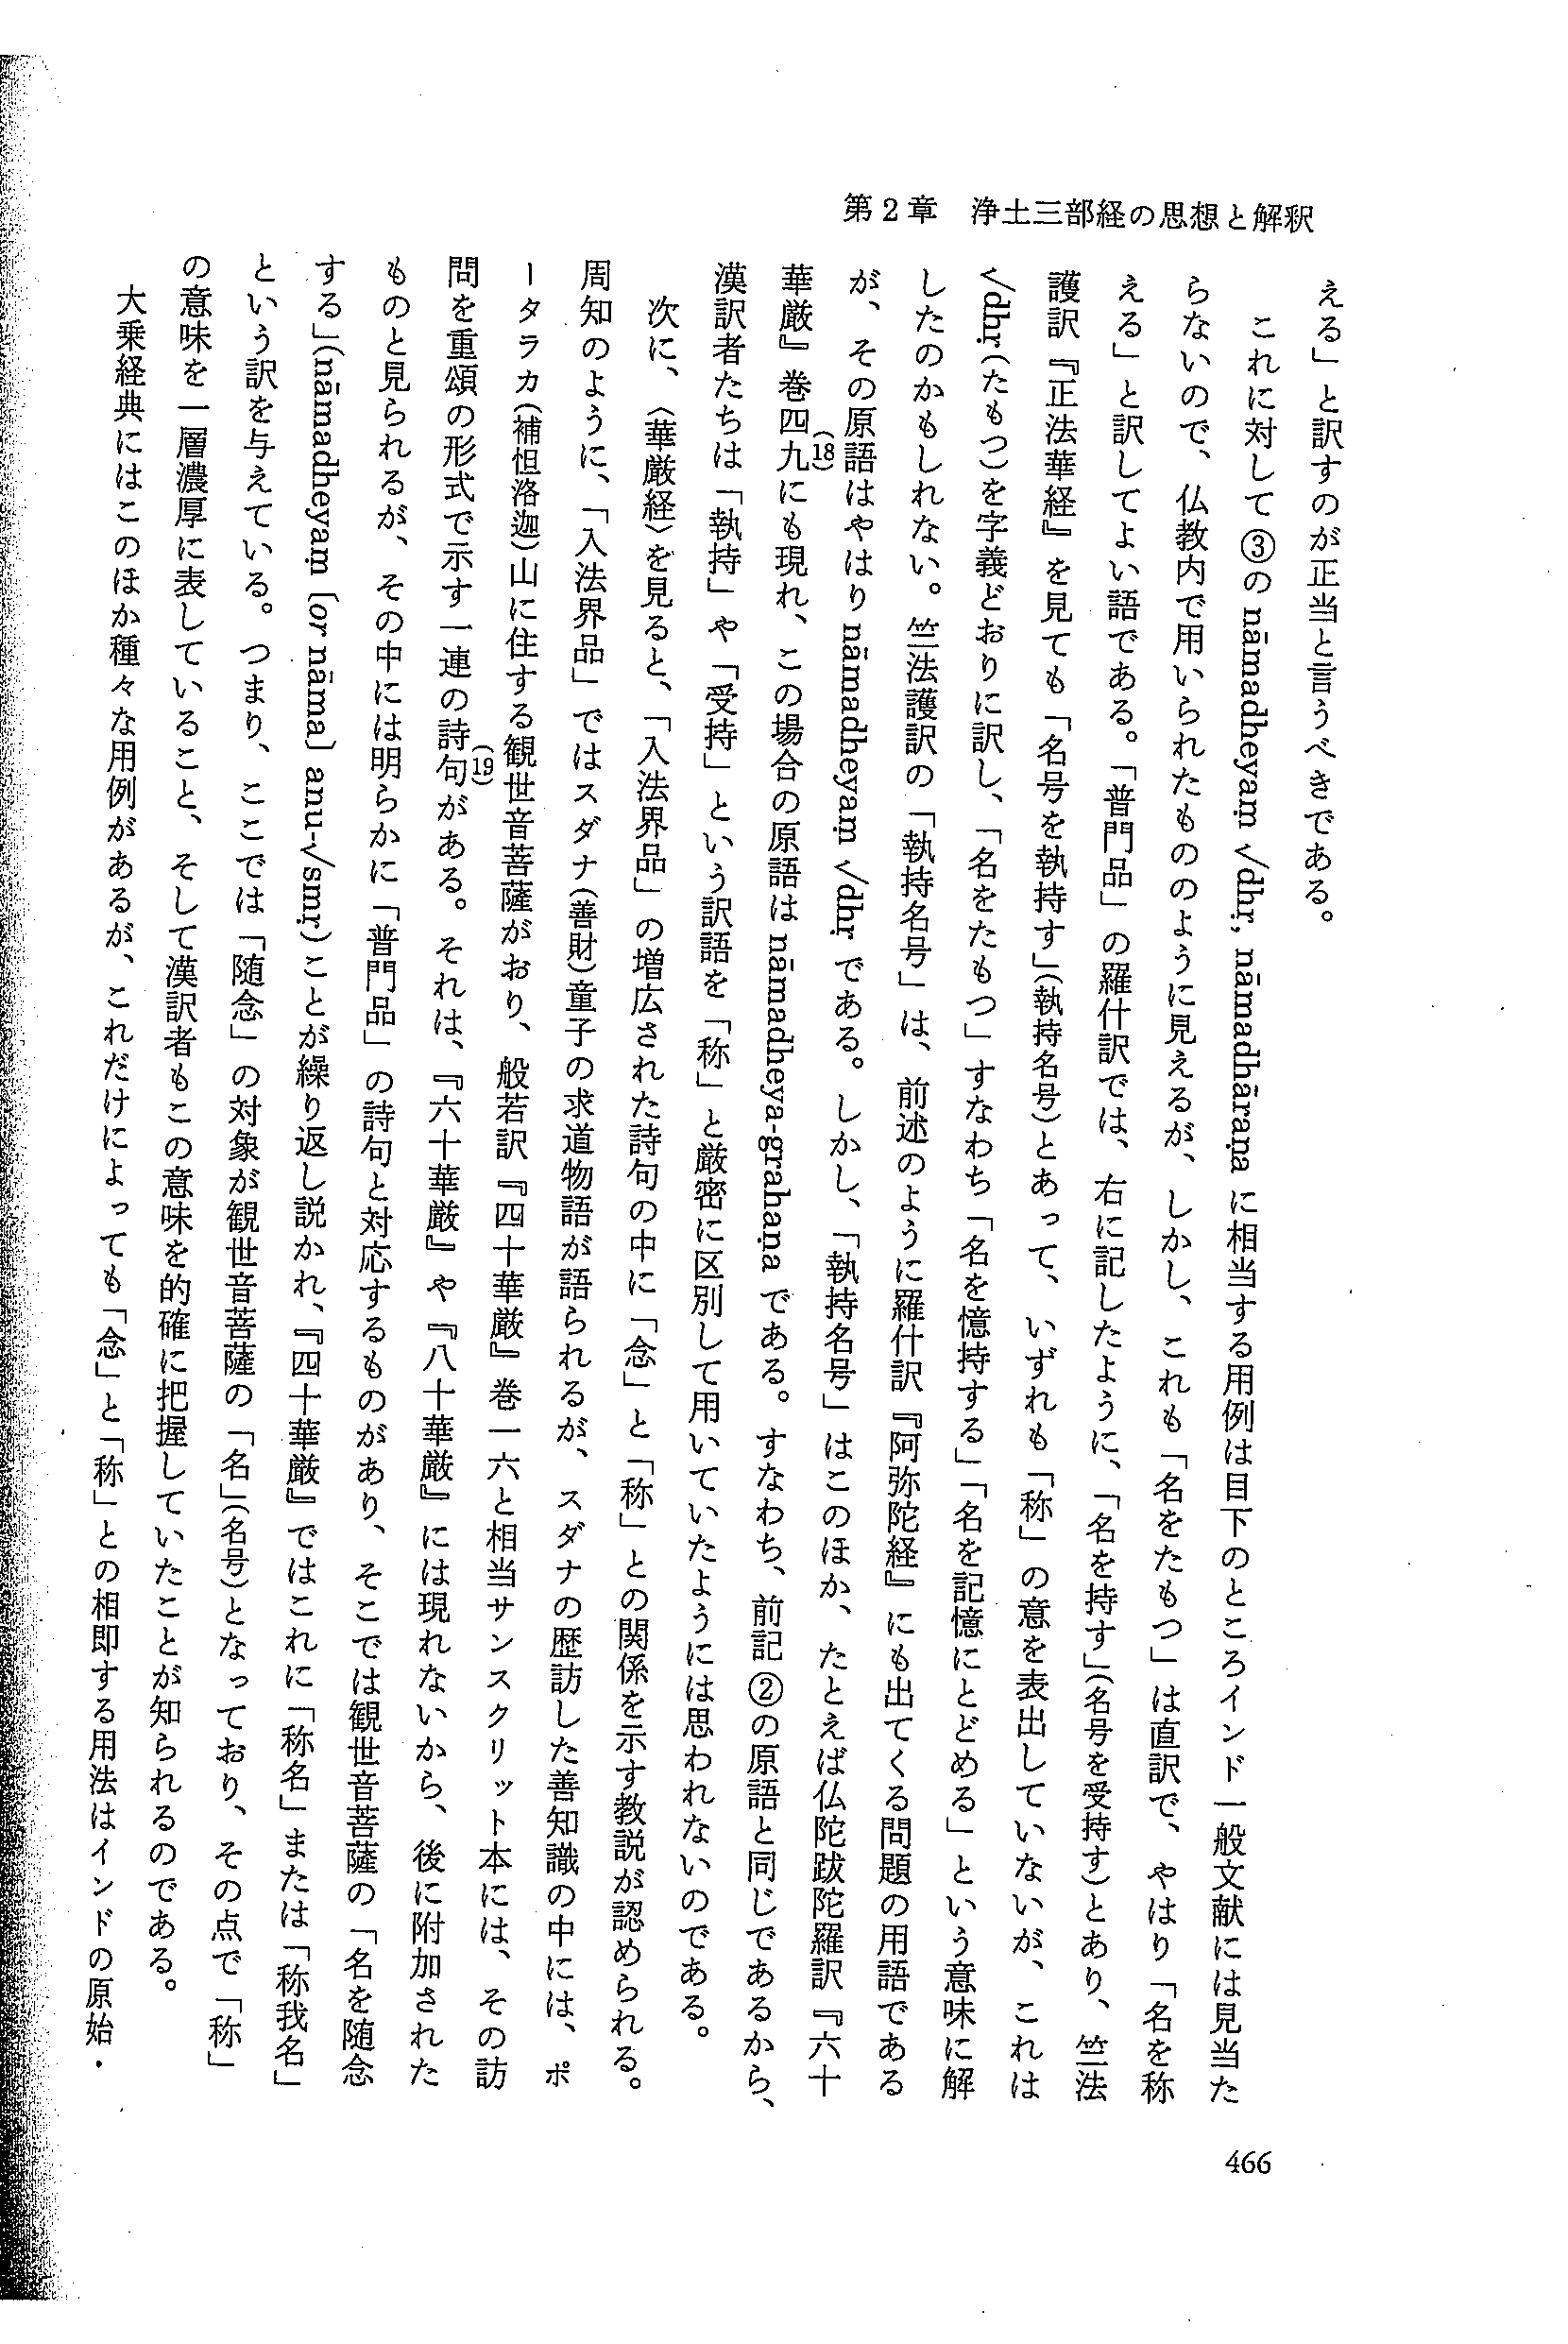 第2章　浄土三部経の思想と解釈
える」と訳すのが正当と言うべきである。
これに対して③の nāmadheyaṃ √dhṛ, nāmadhāraṇa に相当する用例は目下のところインド一般文献には見当た
らないので、仏教内で用いられたもののように見えるが、しかし、これも「名をたもつ」は直訳で、やはり「名を称
える」と訳してよい語である。「普門品」の羅什訳では、右に記したように、「名を持す」(名号を受持す)とあり、竺法
護訳『正法華経』を見ても「名号を執持す」(執持名号)とあって、いずれも「称」の意を表出していないが、これは
√dhṛ(たもつ)を字義どおりに訳し、「名をたもつ」すなわち「名を憶持する」「名を記憶にとどめる」という意味に解
したのかもしれない。竺法護訳の「執持名号」は、前述のように羅什訳『阿弥陀経』にも出てくる問題の用語である
が、その原語はやはり nāmadheyaṃ √dhṛ である。しかし、「執持名号」はこのほか、たとえば仏陀跋陀羅訳『六十
華厳』巻四九(18)にも現れ、この場合の原語は nāmadheya-grahaṇa である。すなわち、前記②の原語と同じであるから、
漢訳者たちは「執持」や「受持」という訳語を「称」と厳密に区別して用いていたようには思われないのである。
次に、〈華厳経〉を見ると、「入法界品」の増広された詩句の中に「念」と「称」との関係を示す教説が認められる。
周知のように、「入法界品」ではスダナ(善財)童子の求道物語が語られるが、スダナの歴訪した善知識の中には、ポ
ータラカ(補怛洛迦)山に住する観世音菩薩がおり、般若訳『四十華厳』巻一六と相当サンスクリット本には、その訪
問を重頌の形式で示す一連の詩句(19)がある。それは、『六十華厳』や『八十華厳』には現れないから、後に附加された
ものと見られるが、その中には明らかに「普門品」の詩句と対応するものがあり、そこでは観世音菩薩の「名を随念
する」(nāmadheyaṃ [or nāma] anu-√smṛ)ことが繰り返し説かれ、『四十華厳』ではこれに「称名」または「称我名」
という訳を与えている。つまり、ここでは「随念」の対象が観世音菩薩の「名」(名号)となっており、その点で「称」
の意味を一層濃厚に表していること、そして漢訳者もこの意味を的確に把握していたことが知られるのである。
大乗経典にはこのほか種々な用例があるが、これだけによっても「念」と「称」との相即する用法はインドの原始・
466